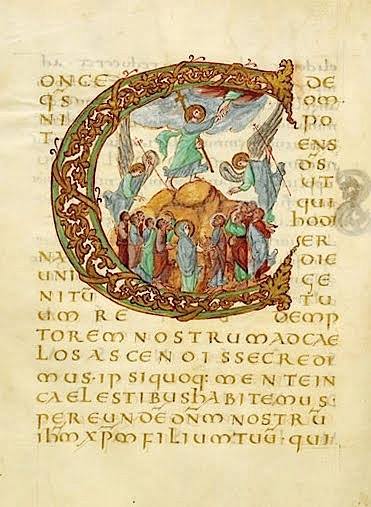 CONCE DE
Q̄S OM
NI PO
T ENS
D̄S
UT
QUI
HODI
ER
NA DIE
UNI GE
NITU TU
UM RE DEMP
TOREM NOSTRUM AD CAE
LOS ASCENDISSE CREDI
MUS · IPSI QUOQ: MENTE IN
CAELESTIBUS HABITEMUS:
PER EUNDĒ DN̄M NOSTRŪ
IHM̄ XP̄M FILIUM TUŪ: QUI